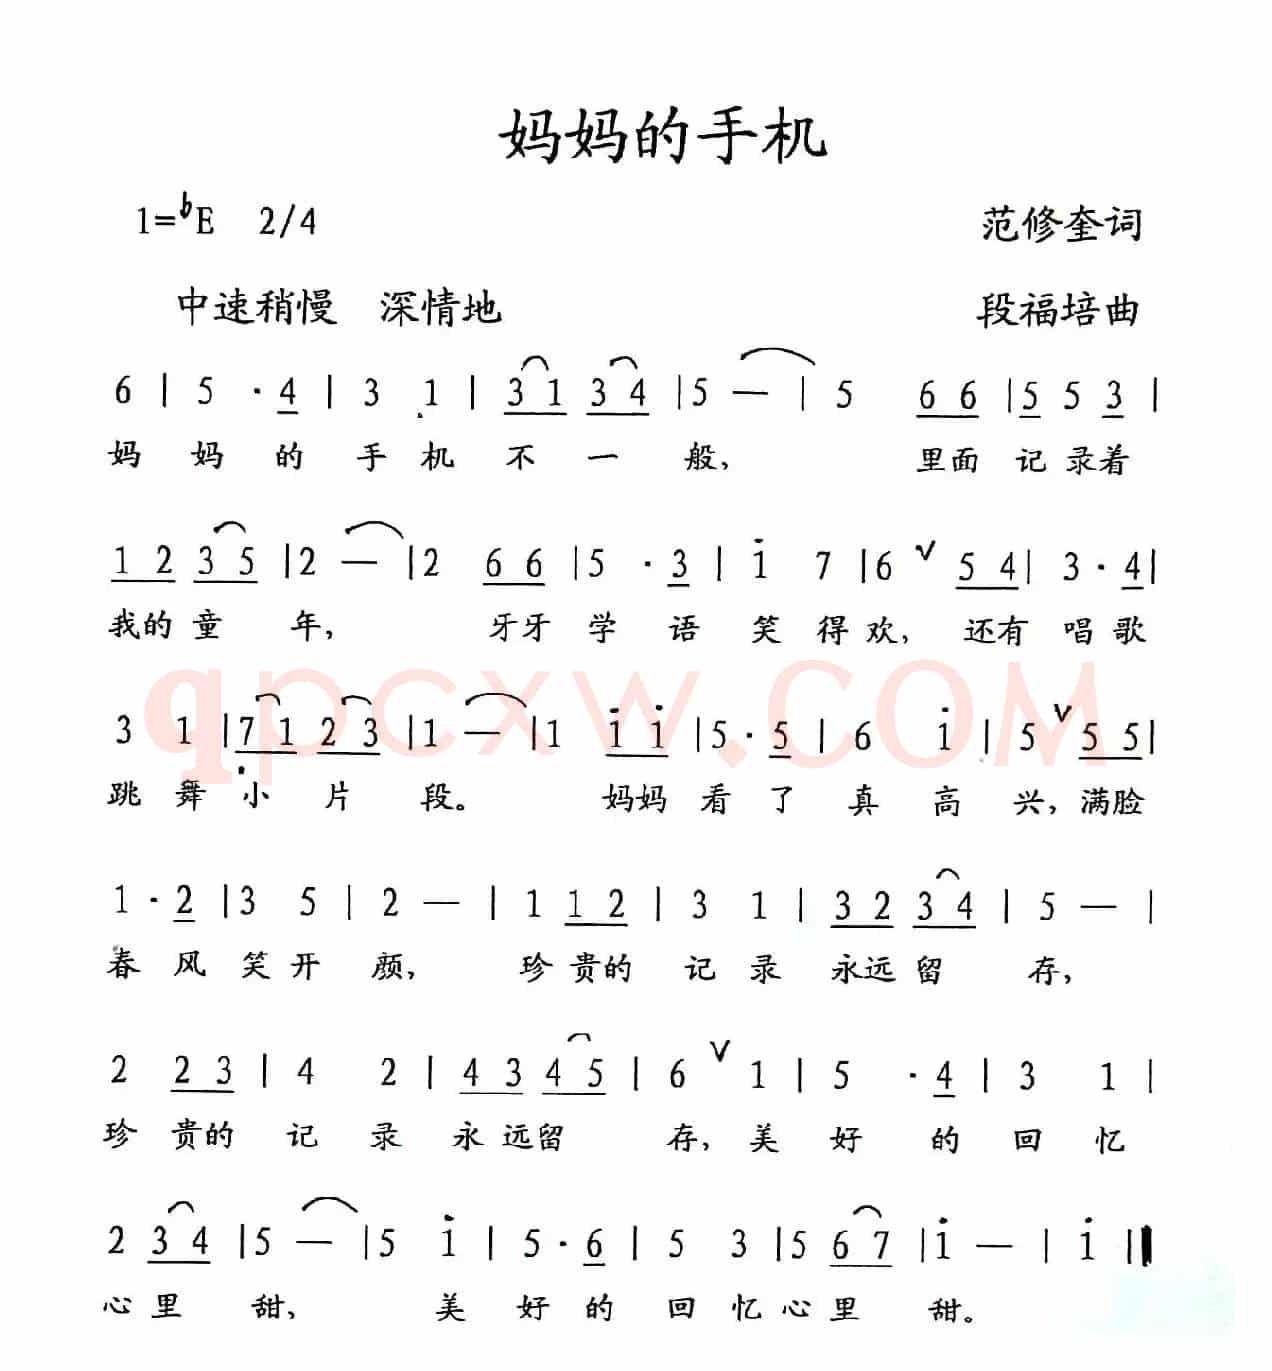 妈妈的手机
1=♭E 2/4 范修奎词
中速稍慢 深情地 段福培曲
6 | 5 · 4 | 3 1 | 3 1 3 4 | 5 — | 5 6 6 | 5 5 3 |
妈 妈 的 手 机 不 一 般， 里面 记 录着
1 2 3 5 | 2 — | 2 6 6 | 5 · 3 | i 7 | 6 ∨ 5 4 | 3 · 4 |
我的 童 年， 牙牙 学 语 笑 得 欢， 还有 唱 歌
qpcxw.COM
3 1 | 7 1 2 3 | 1 — | 1 i i | 5 · 5 | 6 i | 5 ∨ 5 5 |
跳 舞 小 片 段。 妈妈 看 了 真 高 兴，满脸
1 · 2 | 3 5 | 2 — | 1 1 2 | 3 1 | 3 2 3 4 | 5 — |
春 风 笑 开 颜， 珍 贵的 记 录 永远 留 存，
2 2 3 | 4 2 | 4 3 4 5 | 6 ∨ 1 | 5 · 4 | 3 1 |
珍 贵的 记 录 永 远留 存， 美 好 的 回 忆
2 3 4 | 5 — | 5 i | 5 · 6 | 5 3 | 5 6 7 | i — | i ‖
心 里 甜， 美 好 的 回 忆 心 里 甜。